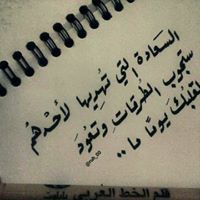 السعادة التي تُهديها لأحدهُم
ستجوب الطُرقاتِ وتعودَ
لقلبك يومًا ما ..
قلم الخط العربي